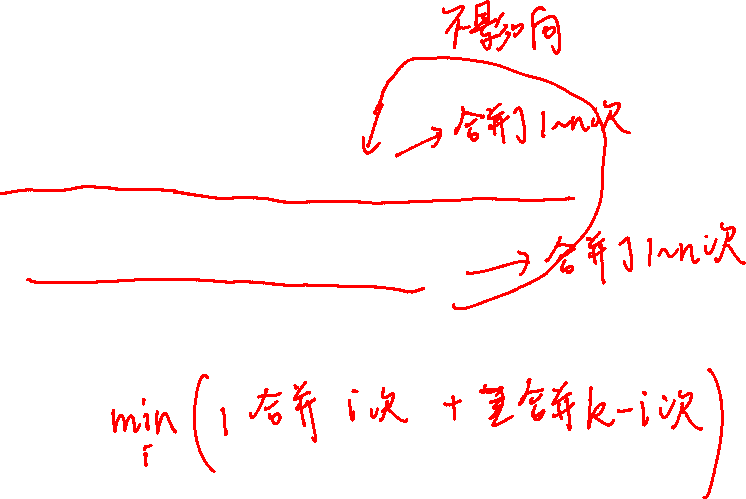 不影向
合并了1~n次
合并了1~n次
min i (1合并i次 + 合并k-i次)